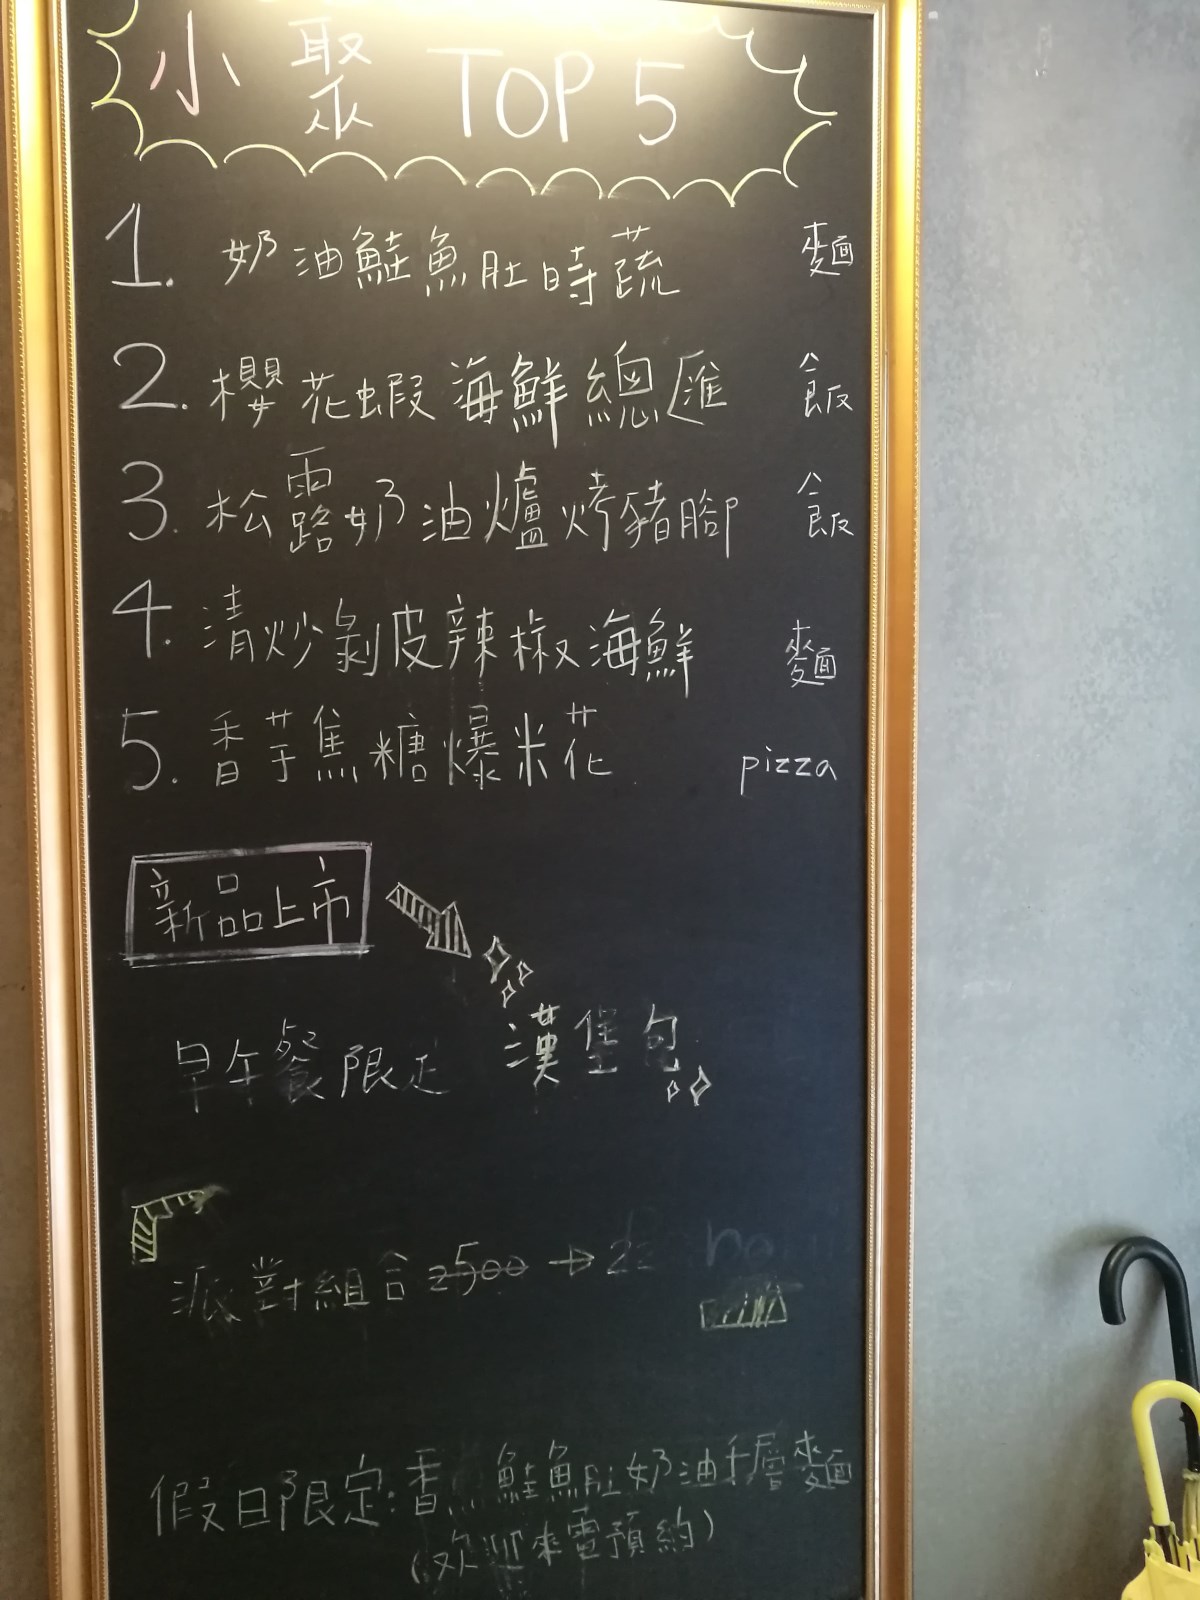 小聚 TOP 5
1. 奶油鮭魚肚時蔬 麵
2. 櫻花蝦海鮮總匯 飯
3. 松露奶油爐烤豬腳 飯
4. 清炒剝皮辣椒海鮮 麵
5. 香芋焦糖爆米花 pizza
新品上市
早午餐限定 漢堡包
派對組合 2500 →
假日限定:香 鮭魚肚奶油千層麵
(歡迎來電預約)